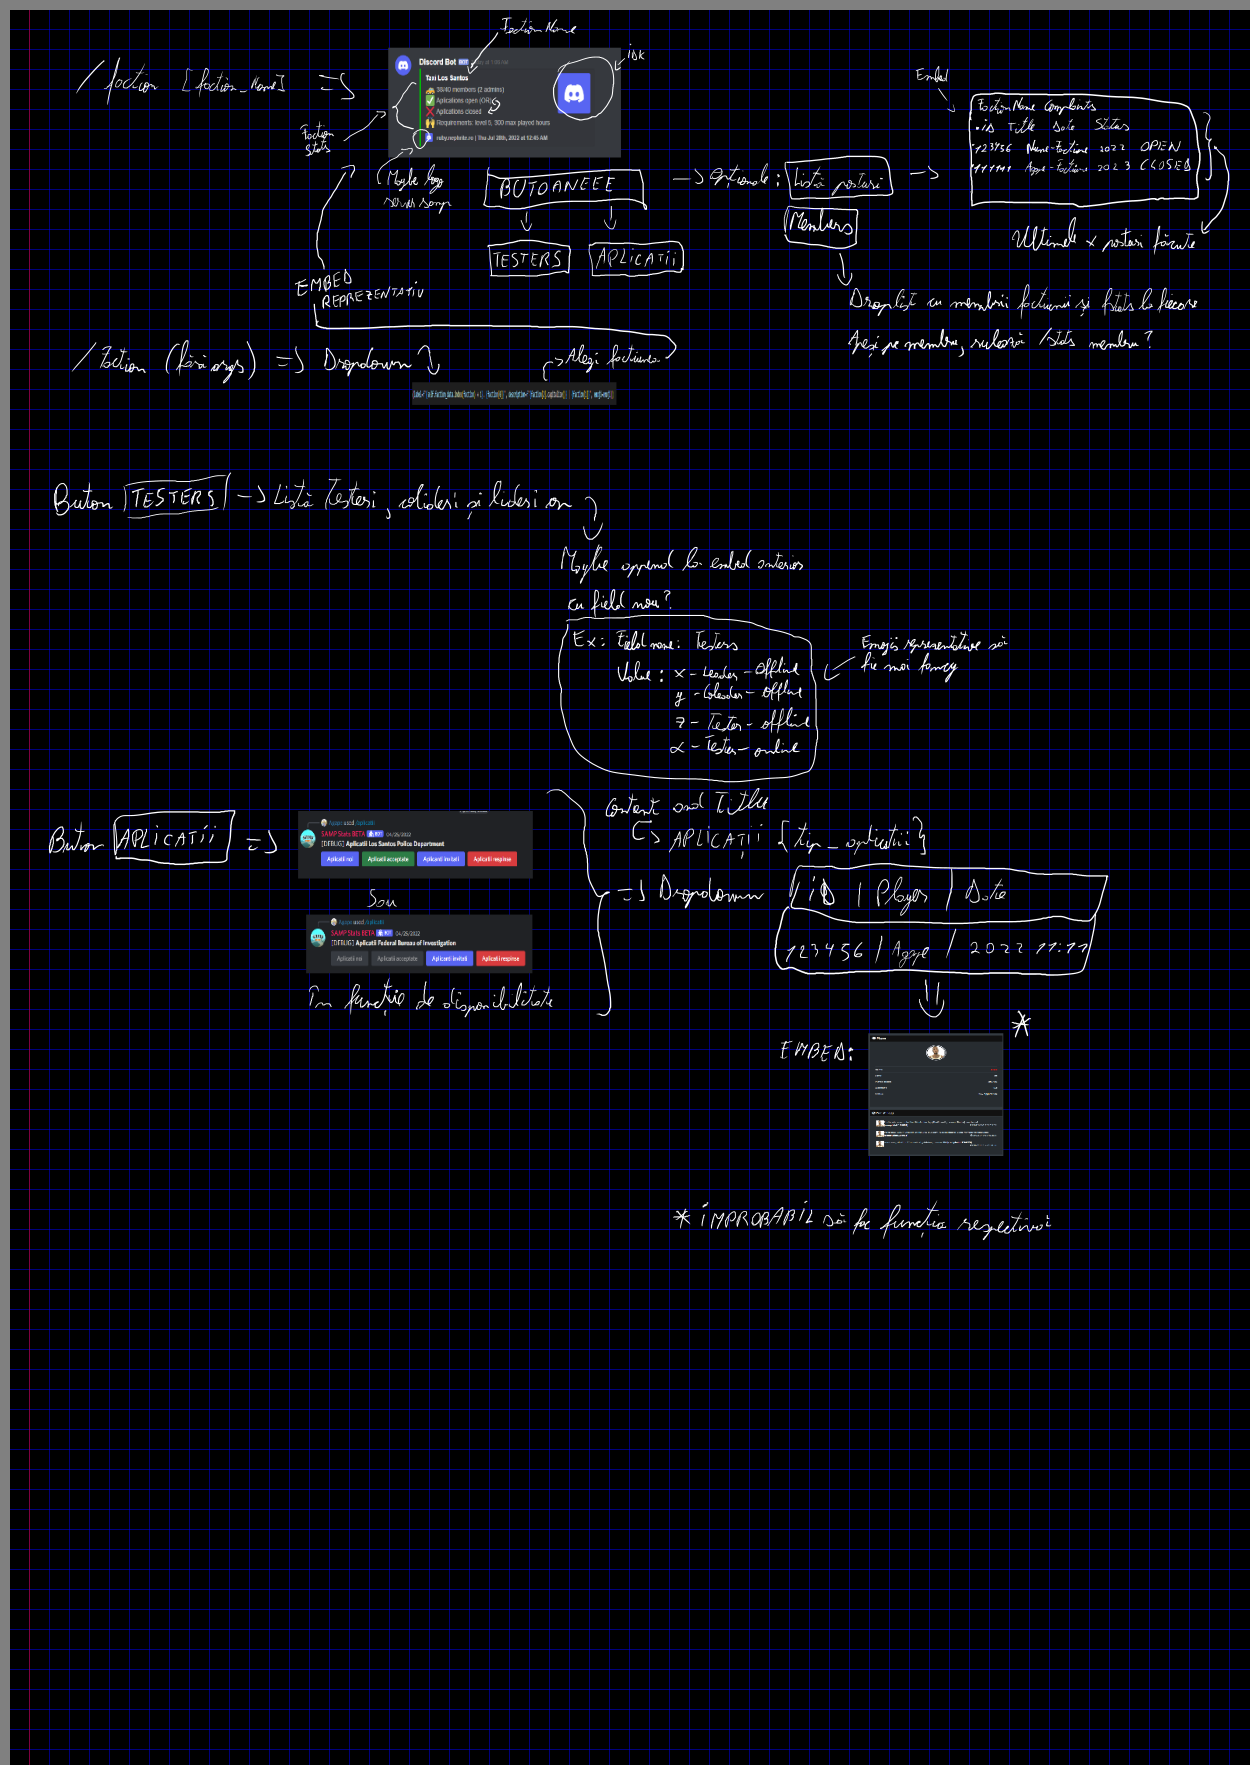 Faction Name
/faction [faction_Name] =>
idk
Discord Bot BOT
Taxi Los Santos
38/40 members (2 admins)
Aplications open (OR)
Aplications closed
Requirements: level 5, 300 max played hours
ruby.nephrite.ro | Thu Jul 28th, 2022 at 12:45 AM
Faction
stats
Maybe logo
server samp
BUTOANEEE
TESTERS
APLICATII
-> Opționale:
Listă postari
Members
Embed
Faction Name Complaints
id Title Date Status
123456 Nume-Factiune 2022 OPEN
111111 Agge-Factiune 2023 CLOSED
Ultimele x postari făcute
Droplist cu membrii factiunii și fstats la fiecare
Apeși pe membru, rulează /stats membru?
EMBED
REPREZENTATIV
/Faction (fără args) => Dropdown
-> Alegi factiunea
Buton TESTERS -> Listă Testeri, colideri și lideri on
Maybe append la embed anterior
cu field nou?
Ex: Field name: Testers
Value: x - Leader - Offline
y - Coleader - offline
z - Tester - offline
α - Tester - online
Emojis reprezentative să
fie mai fancy
Content and Title
APLICAȚII {tip_aplicatii}
Buton APLICATII =>
used /aplicatii
SAMP Stats BETA BOT 04/25/2022
[DEBUG] Aplicatii Los Santos Police Department
Aplicatii noi Aplicatii acceptate Aplicanti invitati Aplicatii respinse
Sau
used /aplicatii
SAMP Stats BETA BOT 04/25/2022
[DEBUG] Aplicatii Federal Bureau of Investigation
Aplicatii noi Aplicatii acceptate Aplicanti invitati Aplicatii respinse
În funcție de disponibilitate
=> Dropdown
iD | Player | Date
123456 | Agge | 2022 11:11
EMBED:
*
* iMPROBABIL să fac funcția respectivă